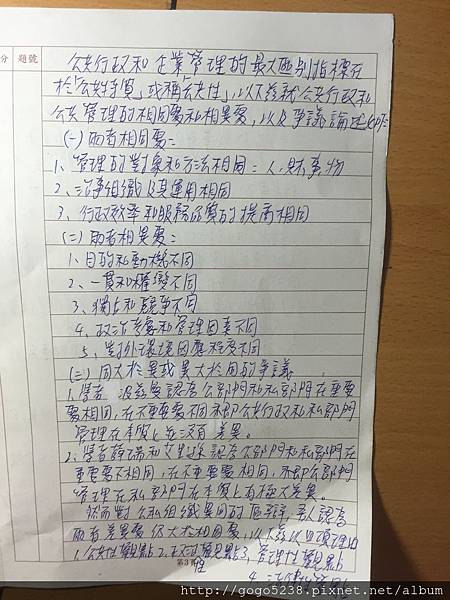 分 題號
公共行政和企業管理的最大區別指標在
於「公共特質」或稱「公共性」,以下茲就公共行政和
公共管理的相同處和相異處,以及爭議論述如下:
(一)兩者相同處:
1、管理的對象和方法相同:人、財、事、物
2、治事組織及其運用相同
3、行政效率和服務品質的提高相同
(二)兩者相異處:
1、目的和動機不同
2、一貫和權變不同
3、獨占和競爭不同
4、政治考慮和管理因素不同
5、對外環境因應程度不同
(三)同大於異或異大於同的爭議
1、學者 認為公部門和私部門在重要
處相同,在不重要處不同,亦即公共行政和私部門
管理在本質上並沒有差異。
2、學者 認為公部門和私部門在
重要處不相同,在不重要處相同,亦即公部門
管理在私部門在本質上有極大差異。
然而對公私組織異同的 ,吾人認為
兩者差異處仍大於相同處,以下茲以四項理由
1、公共性觀點2、政治性觀點3、管理性觀點
第3頁
4、
http://gogo5238.pixnet.net/album